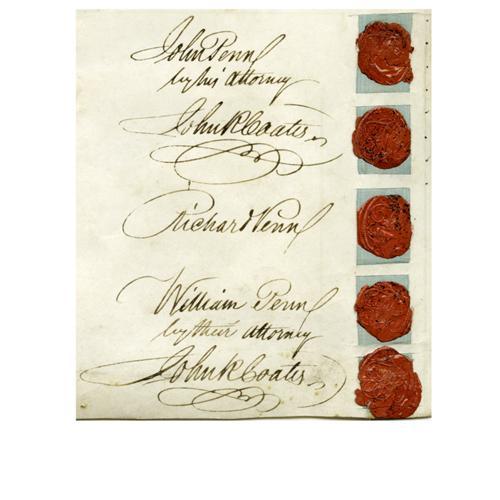 John Penn
by his Attorney
John R Coates
Richard Penn
William Penn
by their Attorney
John R Coates